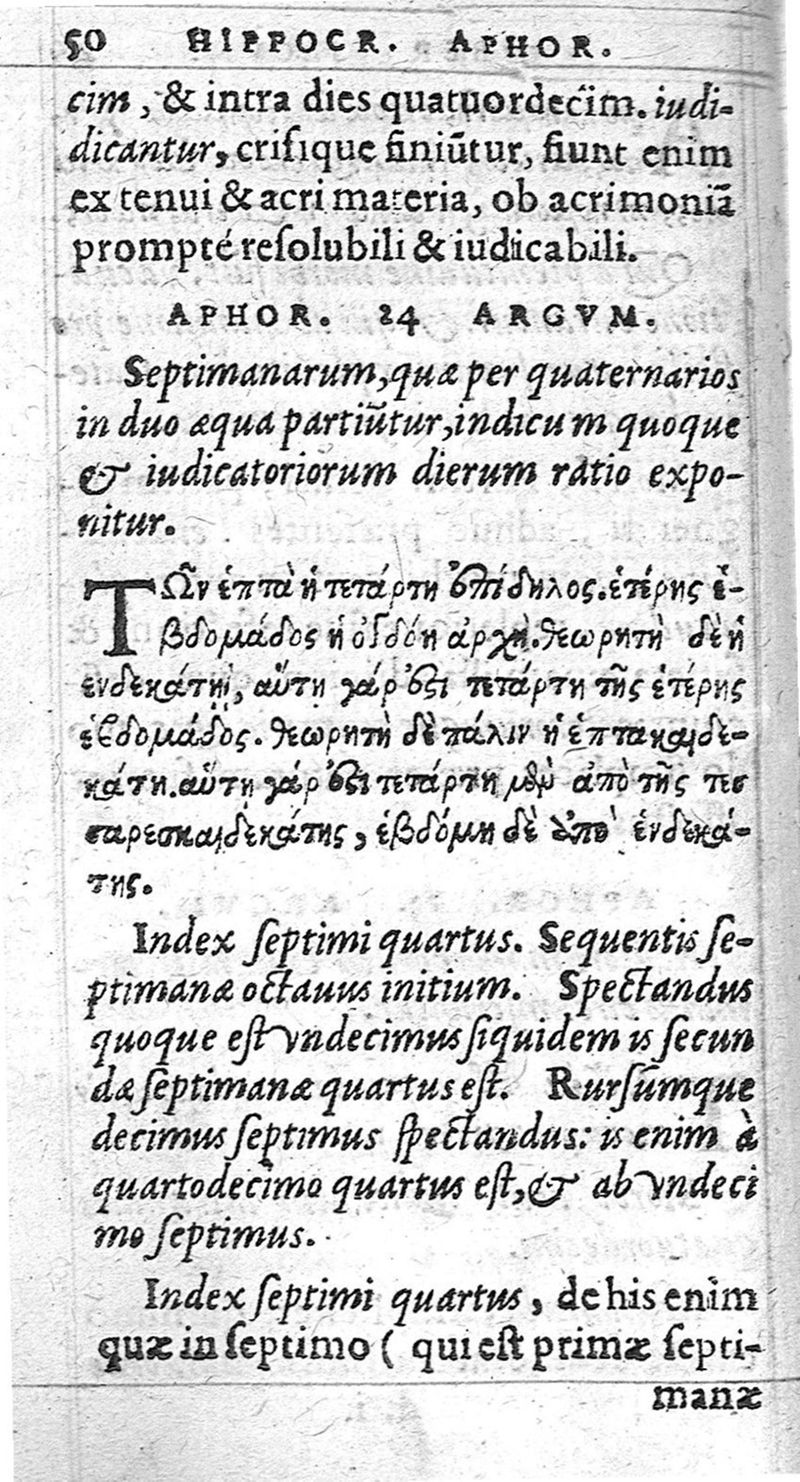 50 HIPPOCR. APHOR.
cim, & intra dies quatuordecim. iudi-
dicantur, crisique finiũtur, fiunt enim
ex tenui & acri materia, ob acrimoniã
prompté resolubili & iudicabili.
APHOR. 24 ARGVM.
Septimanarum, quæ per quaternarios
in duo æqua partiũtur, indicum quoque
& iudicatoriorum dierum ratio expo-
nitur.
ΤΩ͂ν ἑπτὰ ἡ τετάρτη ἐπίδηλος. ἑτέρης ἑ-
βδομάδος ἡ ὀγδόη ἀρχὴ. θεωρητὴ δὲ ἡ
ενδεκάτη, αὕτη γάρ ἐστι τετάρτη τῆς ἑτέρης
ἑβδομάδος. θεωρητὴ δὲ πάλιν ἡ ἑπτακαιδε-
κάτη. αὕτη γάρ ἐστι τετάρτη μὲν ἀπὸ τῆς τεσ
σαρεσκαιδεκάτης, ἑβδόμη δὲ ἀπὸ ἑνδεκά-
της.
Index septimi quartus. Sequentis se-
ptimanæ octauus initium. Spectandus
quoque est vndecimus siquidem is secun
dæ septimanæ quartus est. Rursúmque
decimus septimus spectandus: is enim à
quartodecimo quartus est, & ab vndeci
mo septimus.
Index septimi quartus, de his enim
quæ in septimo ( qui est primæ septi-
manæ